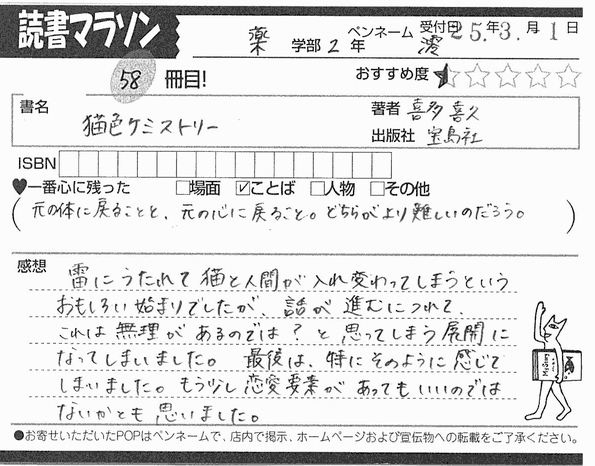 読書マラソン
薬 学部 2 年 ペンネーム 澪 受付日 25年3.月1日
58 冊目! おすすめ度 ★☆☆☆☆
書名 猫色ケミストリー 著者 喜多喜久
出版社 宝島社
ISBN
♥一番心に残った □場面 ☑ことば □人物 □その他
(元の体に戻ることと、元の心に戻ること。どちらがより難しいのだろう。)
感想
雷にうたれて猫と人間が入れ変わってしまうという
おもしろい始まりでしたが、話が進むにつれて、
これは無理があるのでは?と思ってしまう展開に
なってしまいました。最後は、特にそのように感じて
しまいました。もう少し恋愛要素があってもいいのでは
ないかとも思いました。
●お寄せいただいたPOPはペンネームで、店内で掲示、ホームページおよび宣伝物への転載をご了承ください。